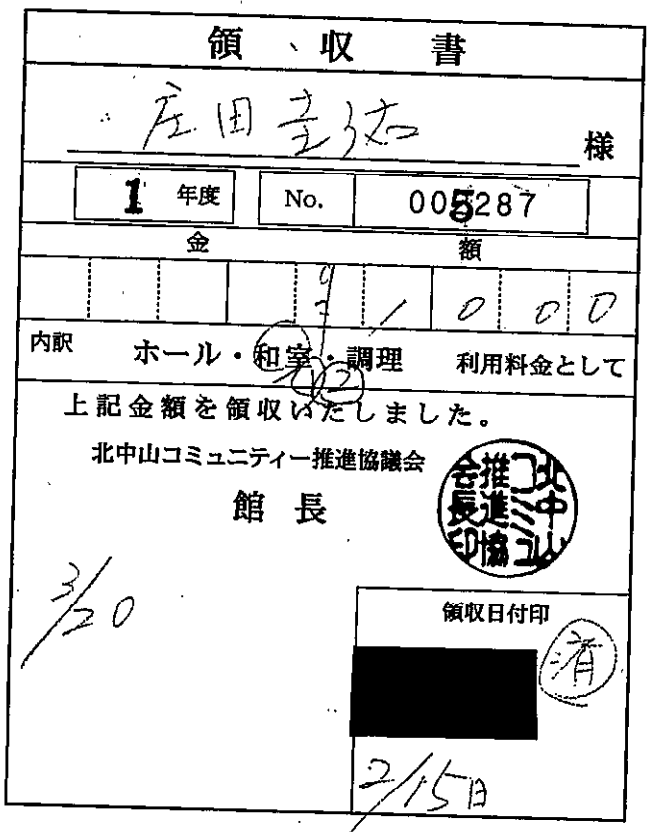 領収書
庄田圭祐 様
1 年度 No. 005287
金 額
¥ 1 0 0 0
内訳 ホール・和室・調理 利用料金として
1 2
上記金額を領収いたしました。
北中山コミュニティー推進協議会
館長
北中山コミ推進協会長印
3/20
領収日付印
済
2/15日